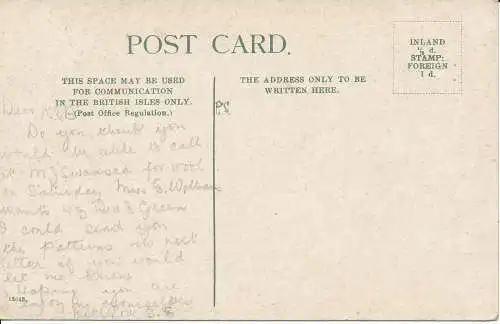 POST CARD.
INLAND
½ d.
STAMP:
FOREIGN
1 d.
THIS SPACE MAY BE USED
FOR COMMUNICATION
IN THE BRITISH ISLES ONLY.
(Post Office Regulation.)
THE ADDRESS ONLY TO BE
WRITTEN HERE.
Dear
Do you think you
would be able to call
at Swansea for wool
on Saturday Miss
wants Green
I could send you
the patterns
letter if you would
let me know
Hoping you are
enjoying